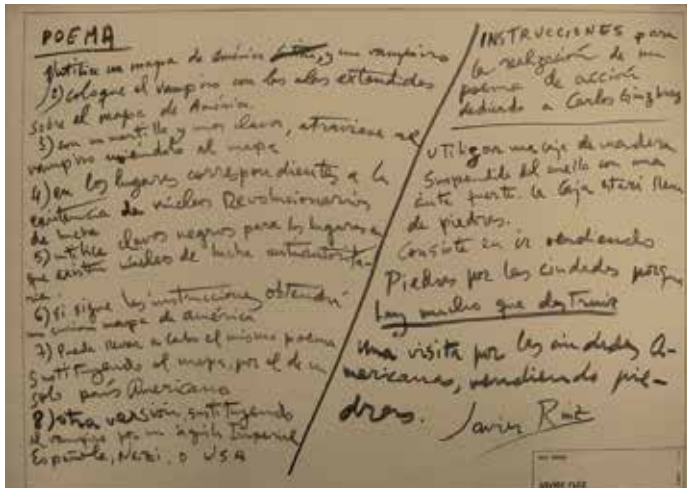 POEMA
1) utilice un mapa de América Latina, y un vampiro
2) coloque el vampiro con las alas extendidas
sobre el mapa de América.
3) con un martillo y unos clavos, atraviese al
vampiro uniéndolo al mapa
4) en los lugares correspondientes a la
existencia de núcleos Revolucionarios
de lucha
5) utilice clavos negros para los lugares en
que existen núcleos de lucha
6) Si sigue las instrucciones obtendrá
un curioso mapa de américa
7) Puede llevar a cabo el mismo poema
sustituyendo el mapa, por el de un
solo país Americano
8) otra versión, sustituyendo
el vampiro por un águila Imperial
Española, Nazi, o USA
INSTRUCCIONES para
la realización de un
poema de acción
dedicado a Carlos Ginzburg
utilizar una caja de madera
suspendida del cuello con una
cinta fuerte. la caja estará llena
de piedras.
Consiste en ir vendiendo
Piedras por las ciudades porque
hay mucho que destruir
una visita por las ciudades A-
mericanas, vendiendo pie-
dras.
Javier Ruiz
JAVIER RUIZ